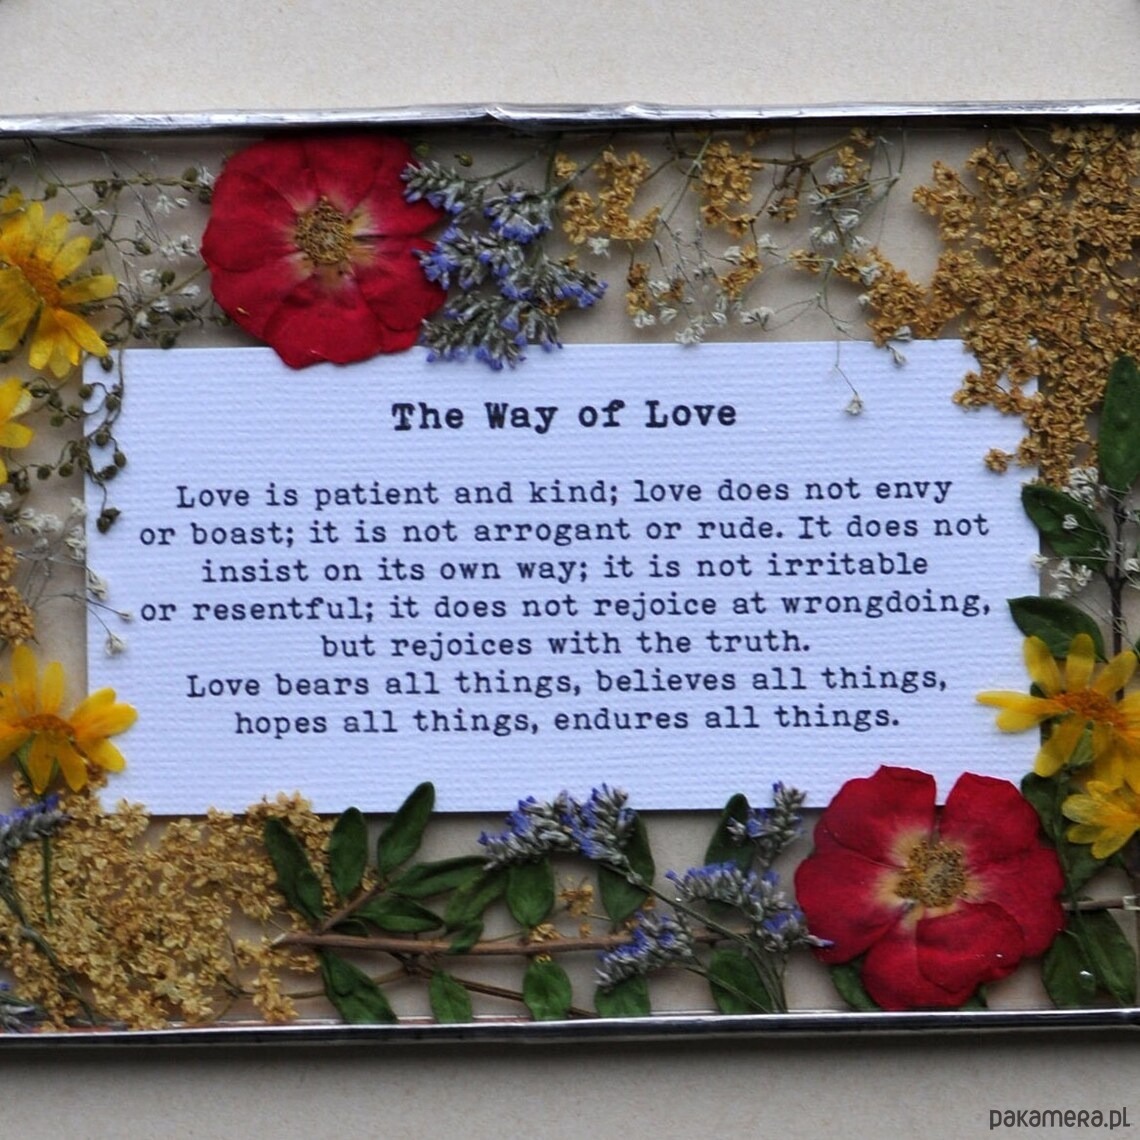 The Way of Love
Love is patient and kind; love does not envy
or boast; it is not arrogant or rude. It does not
insist on its own way; it is not irritable
or resentful; it does not rejoice at wrongdoing,
but rejoices with the truth.
Love bears all things, believes all things,
hopes all things, endures all things.
pakamera.pl